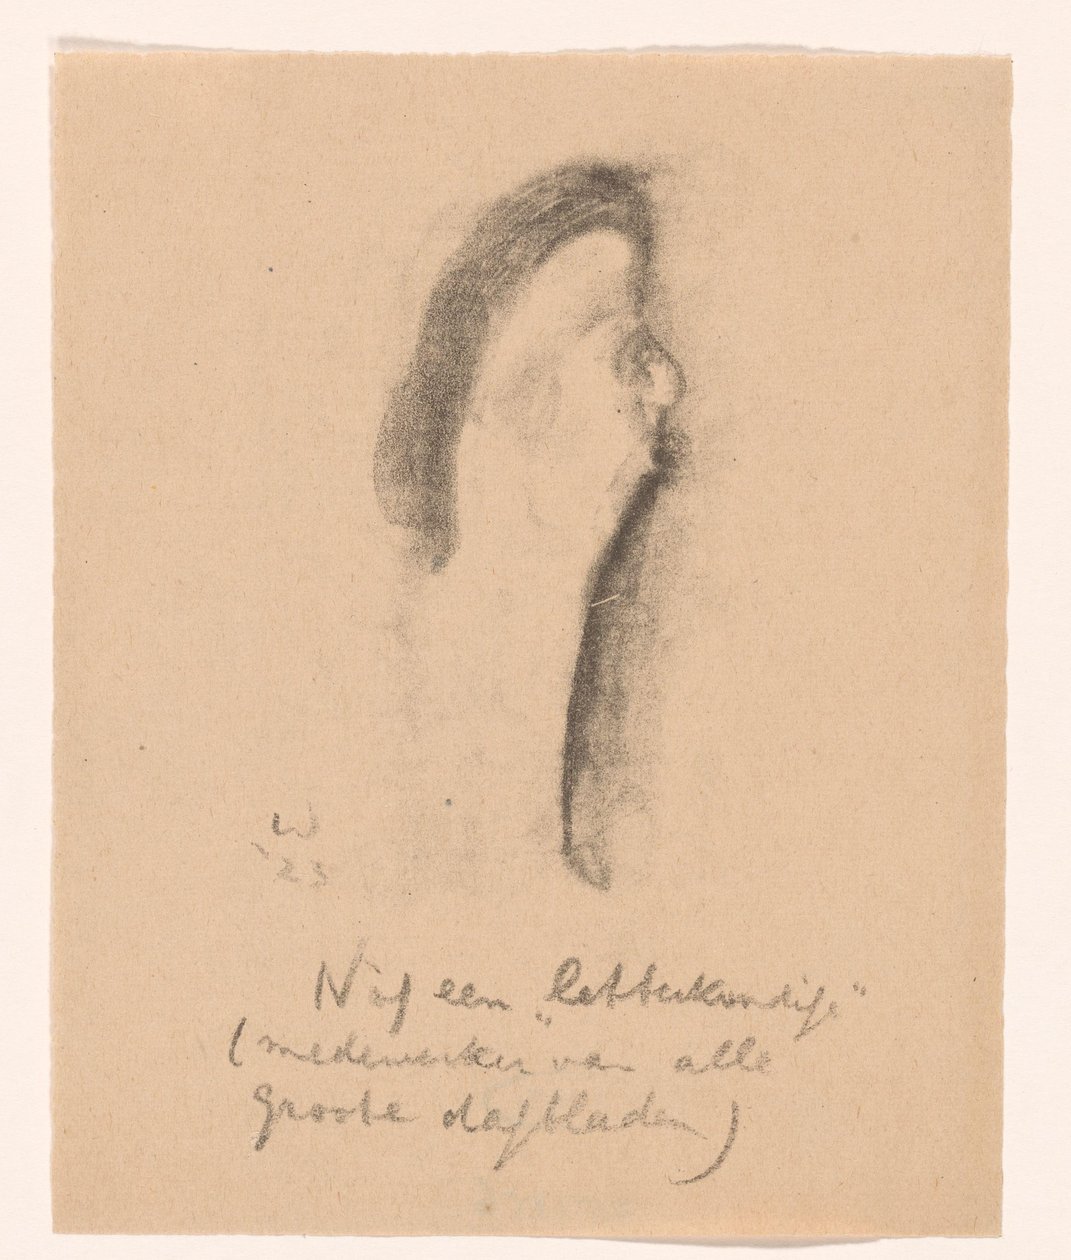 W
'23
Nog een „letterkundige"
(medewerker van alle
groote dagbladen)